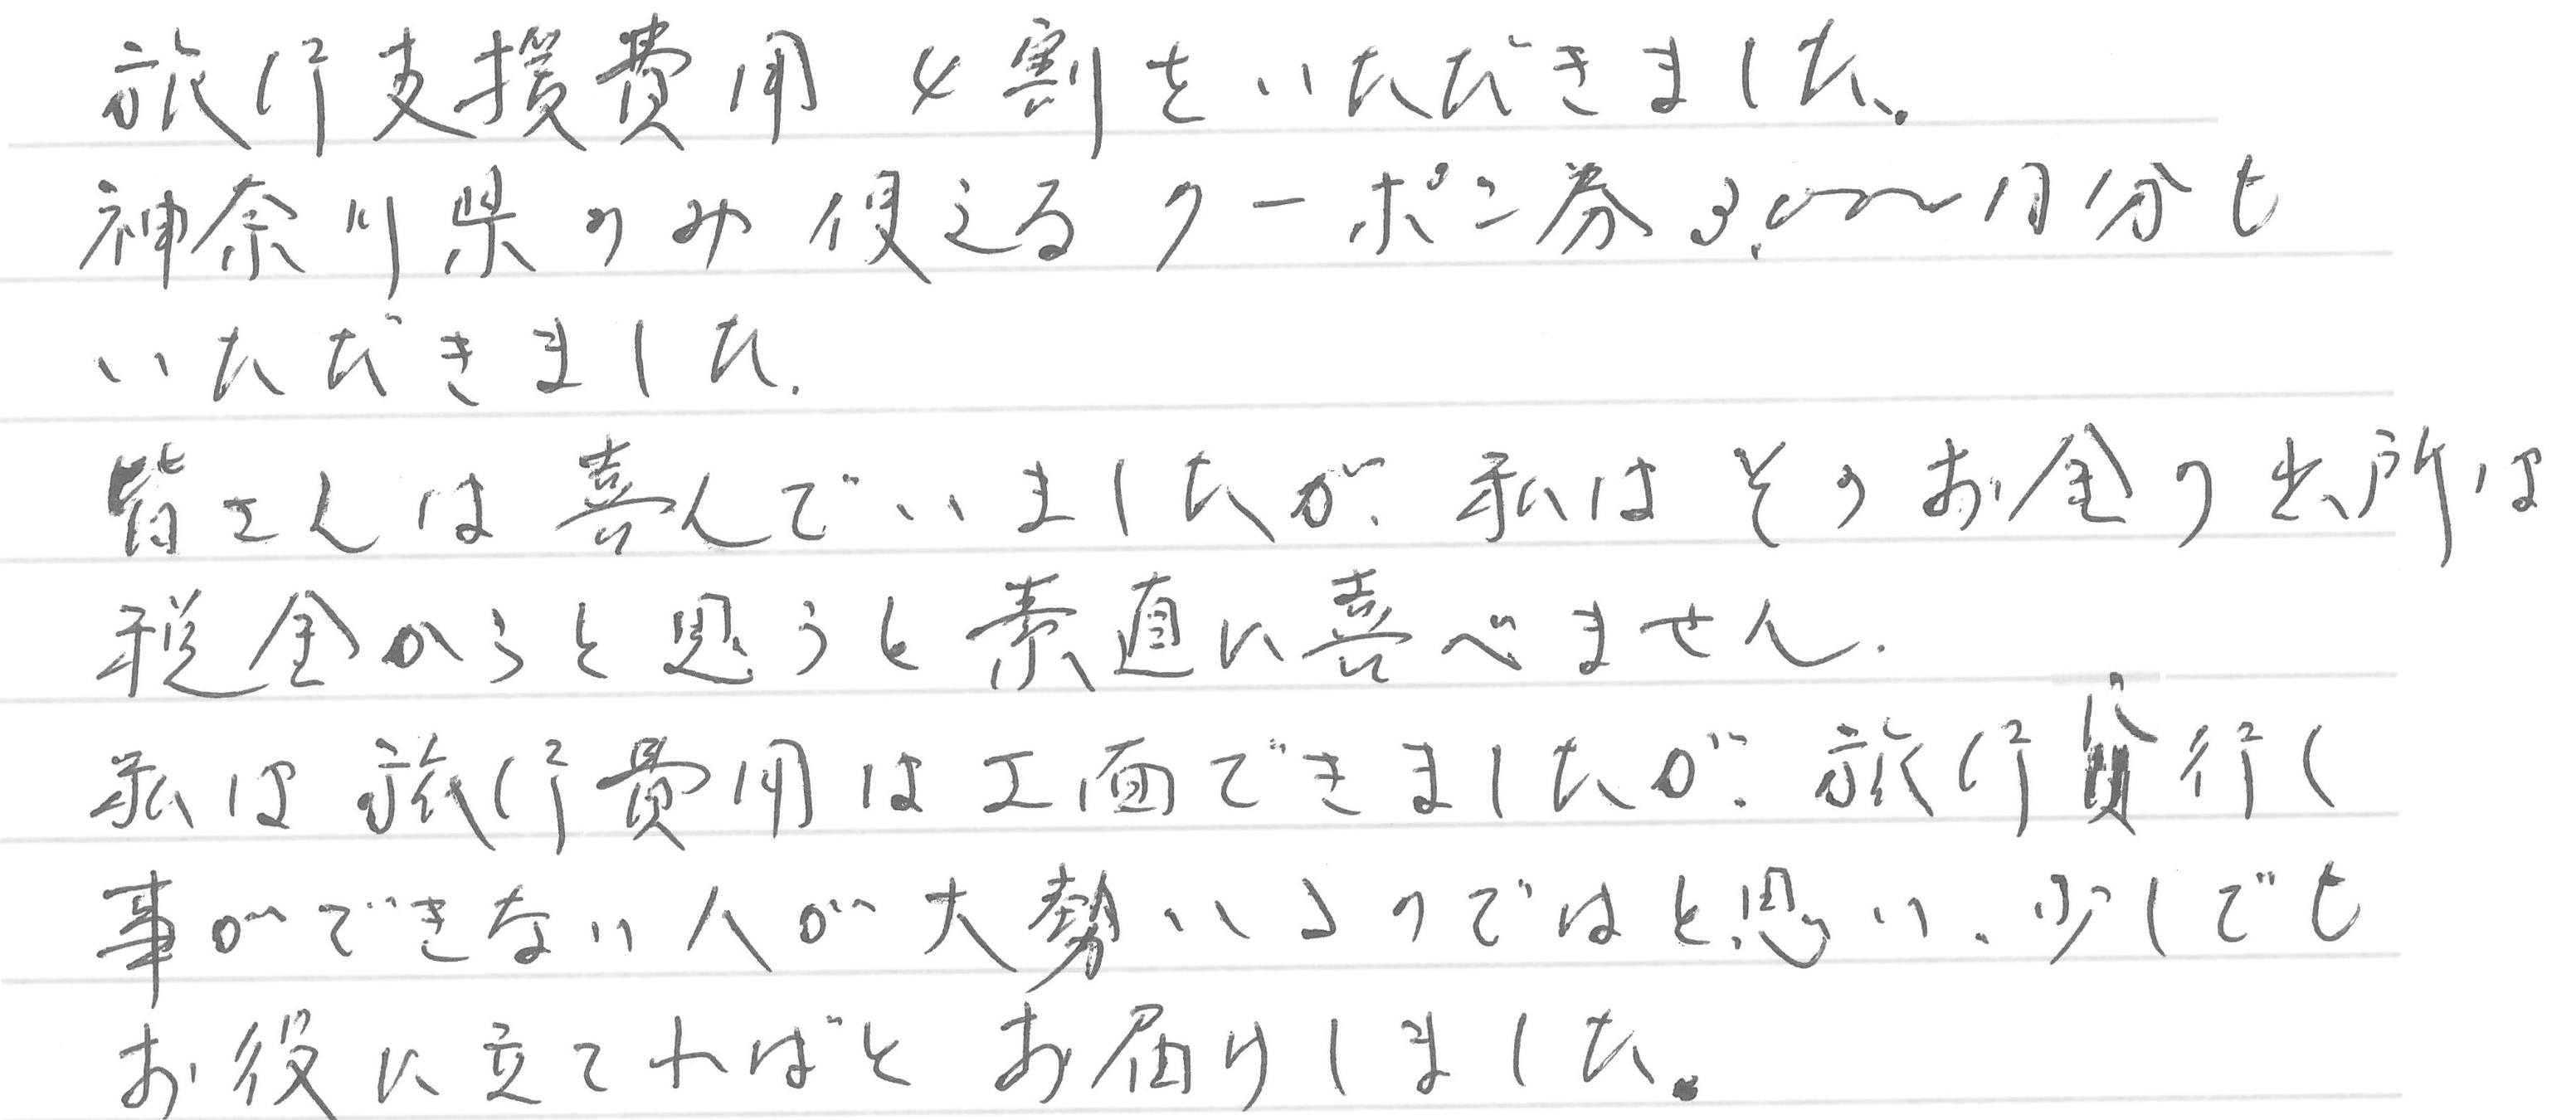 旅行支援費用 4割をいただきました。
神奈川県のみ使えるクーポン券3,000円分も
いただきました.
皆さんは喜んでいましたが、私はそのお金の出所は
税金からと思うと素直に喜べません.
私は旅行費用は工面できましたが、旅行 行く
事ができない人が大勢いるのではと思い、少しでも
お役に立てればとお届けしました。